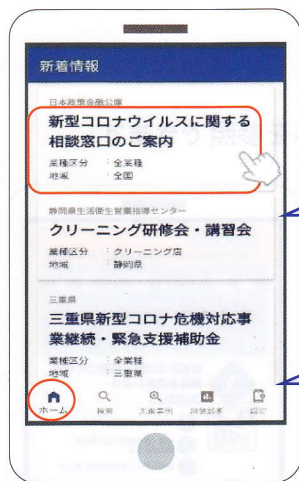 新着情報
日本政策金融公庫
新型コロナウイルスに関する
相談窓口のご案内
業種区分 : 全業種
地域 : 全国
静岡県生活衛生営業指導センター
クリーニング研修会・講習会
業種区分 : クリーニング店
地域 : 静岡県
三重県
三重県新型コロナ危機対応事
業継続・緊急支援補助金
業種区分 : 全業種
地域 : 三重県
ホーム 検索 設定